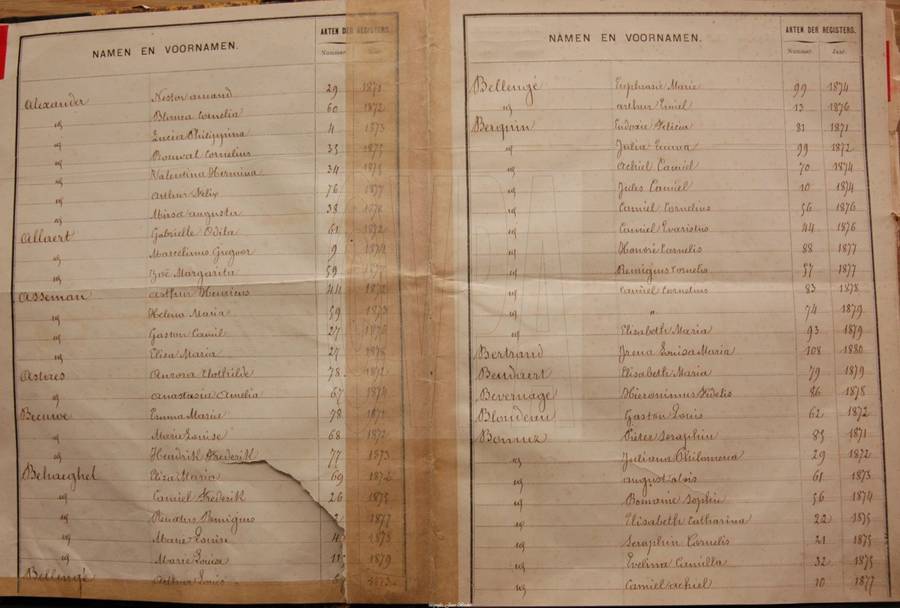 NAMEN EN VOORNAMEN. AKTEN DER REGISTERS.
Nummer. Jaar.
Alexander Nestor amand 29 1871
" Blanca Cornelia 60 1872
" Lucia Philippina 4 1873
" Cornelius 35 1875
" Valentina Hermina 34 1875
" Arthur Felix 76 1877
" Mirsa augusta 38 1878
Allaert Gabrielle Odila 61 1872
" Marcelinus Gregoor 9 1874
" Zoë Margarita 59
Asseman Arthur Henricus 44
" Helena Maria 59
" Gaston Camil 27
" Elisa Maria 27
Astaes Aurora Clothilde 78 1872
" anastasia amelia 67 1874
Becuwe Emma Marie 78
" Marie Louise 68 1872
" Hendrik Frederik 77 1873
Behaeghel Eliza Maria 69 1872
" Camiel Frederik 26 1875
" Renatus Remigius 1877
" Marie Louise 1878
" Marie Louisa 11 1879
Bellengé Arthur Louis
NAMEN EN VOORNAMEN. AKTEN DER REGISTERS.
Nummer. Jaar.
Bellengé Euphrasie Marie 99 1874
" arthur Emiel 13 1876
Berquin Ludovie Felicia 81 1871
" Julia Emma 99 1872
" Achiel Camiel 70 1874
" Jules Camiel 10 1874
" Camiel Cornelius 56 1876
" Camiel Evaristus 44 1876
" Honoré Cornelis 88 1877
" Remigius Cornelis 57 1877
" Camiel Cornelius 83 1878
" " 74 1879
" Elisabeth Maria 93 1879
Bertrand Irena Louisa Maria 108 1880
Beudaert Elisabeth Maria 79 1879
Bevernage Hieronimus Fidelis 86 1878
Blondeau Gaston Louis 62 1872
Bonnez Pieter Seraphin 85 1871
" Juliana Philomena 29 1872
" august alois 61 1873
" Romanie Sophie 56 1874
" Elisabeth Catharina 22 1875
" Seraphin Cornelis 21 1875
" Evelina Camilla 32 1875
" Camiel achiel 10 1877